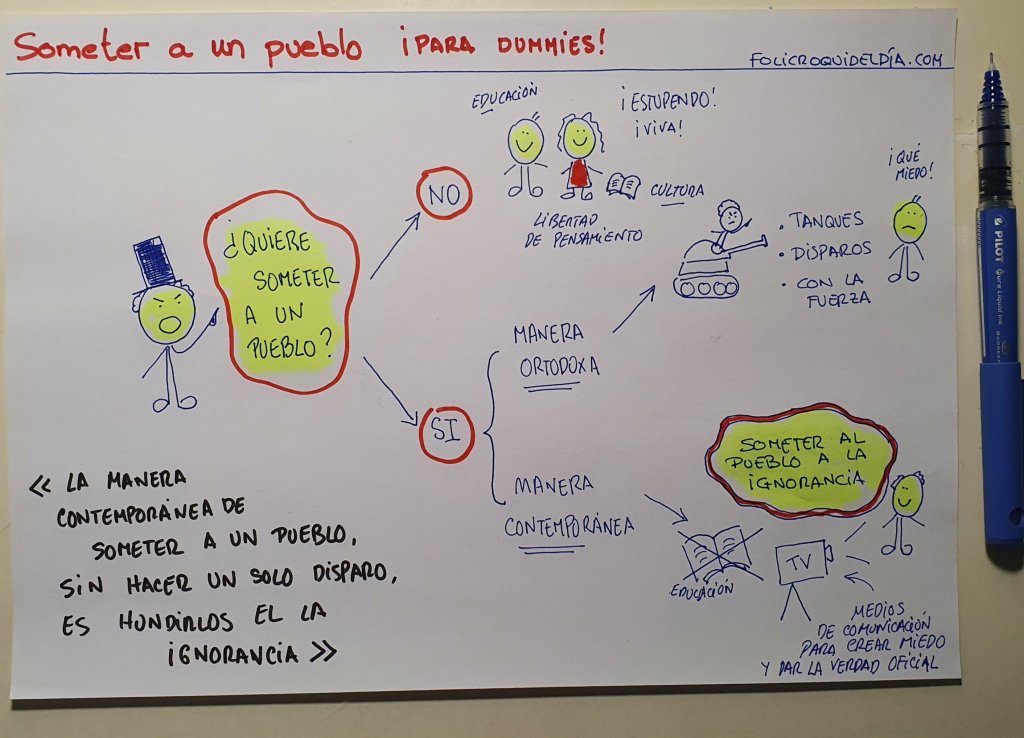 Someter a un pueblo ¡PARA DUMMIES!
FOLICROQUIDELDÍA.COM
¿QUIERE
SOMETER
A UN
PUEBLO?
NO
EDUCACIÓN
¡ESTUPENDO!
¡VIVA!
CULTURA
LIBERTAD
DE PENSAMIENTO
SI
MANERA
ORTODOXA
• TANQUES
• DISPAROS
• CON LA
FUERZA
¡QUÉ
MIEDO!
MANERA
CONTEMPORÁNEA
EDUCACIÓN
TV
SOMETER AL
PUEBLO A LA
IGNORANCIA
MEDIOS
DE COMUNICACIÓN
PARA CREAR MIEDO
Y DAR LA VERDAD OFICIAL
« LA MANERA
CONTEMPORÁNEA DE
SOMETER A UN PUEBLO,
SIN HACER UN SOLO DISPARO,
ES HUNDIRLOS EL LA
IGNORANCIA »
PILOT
Pure Liquid Ink